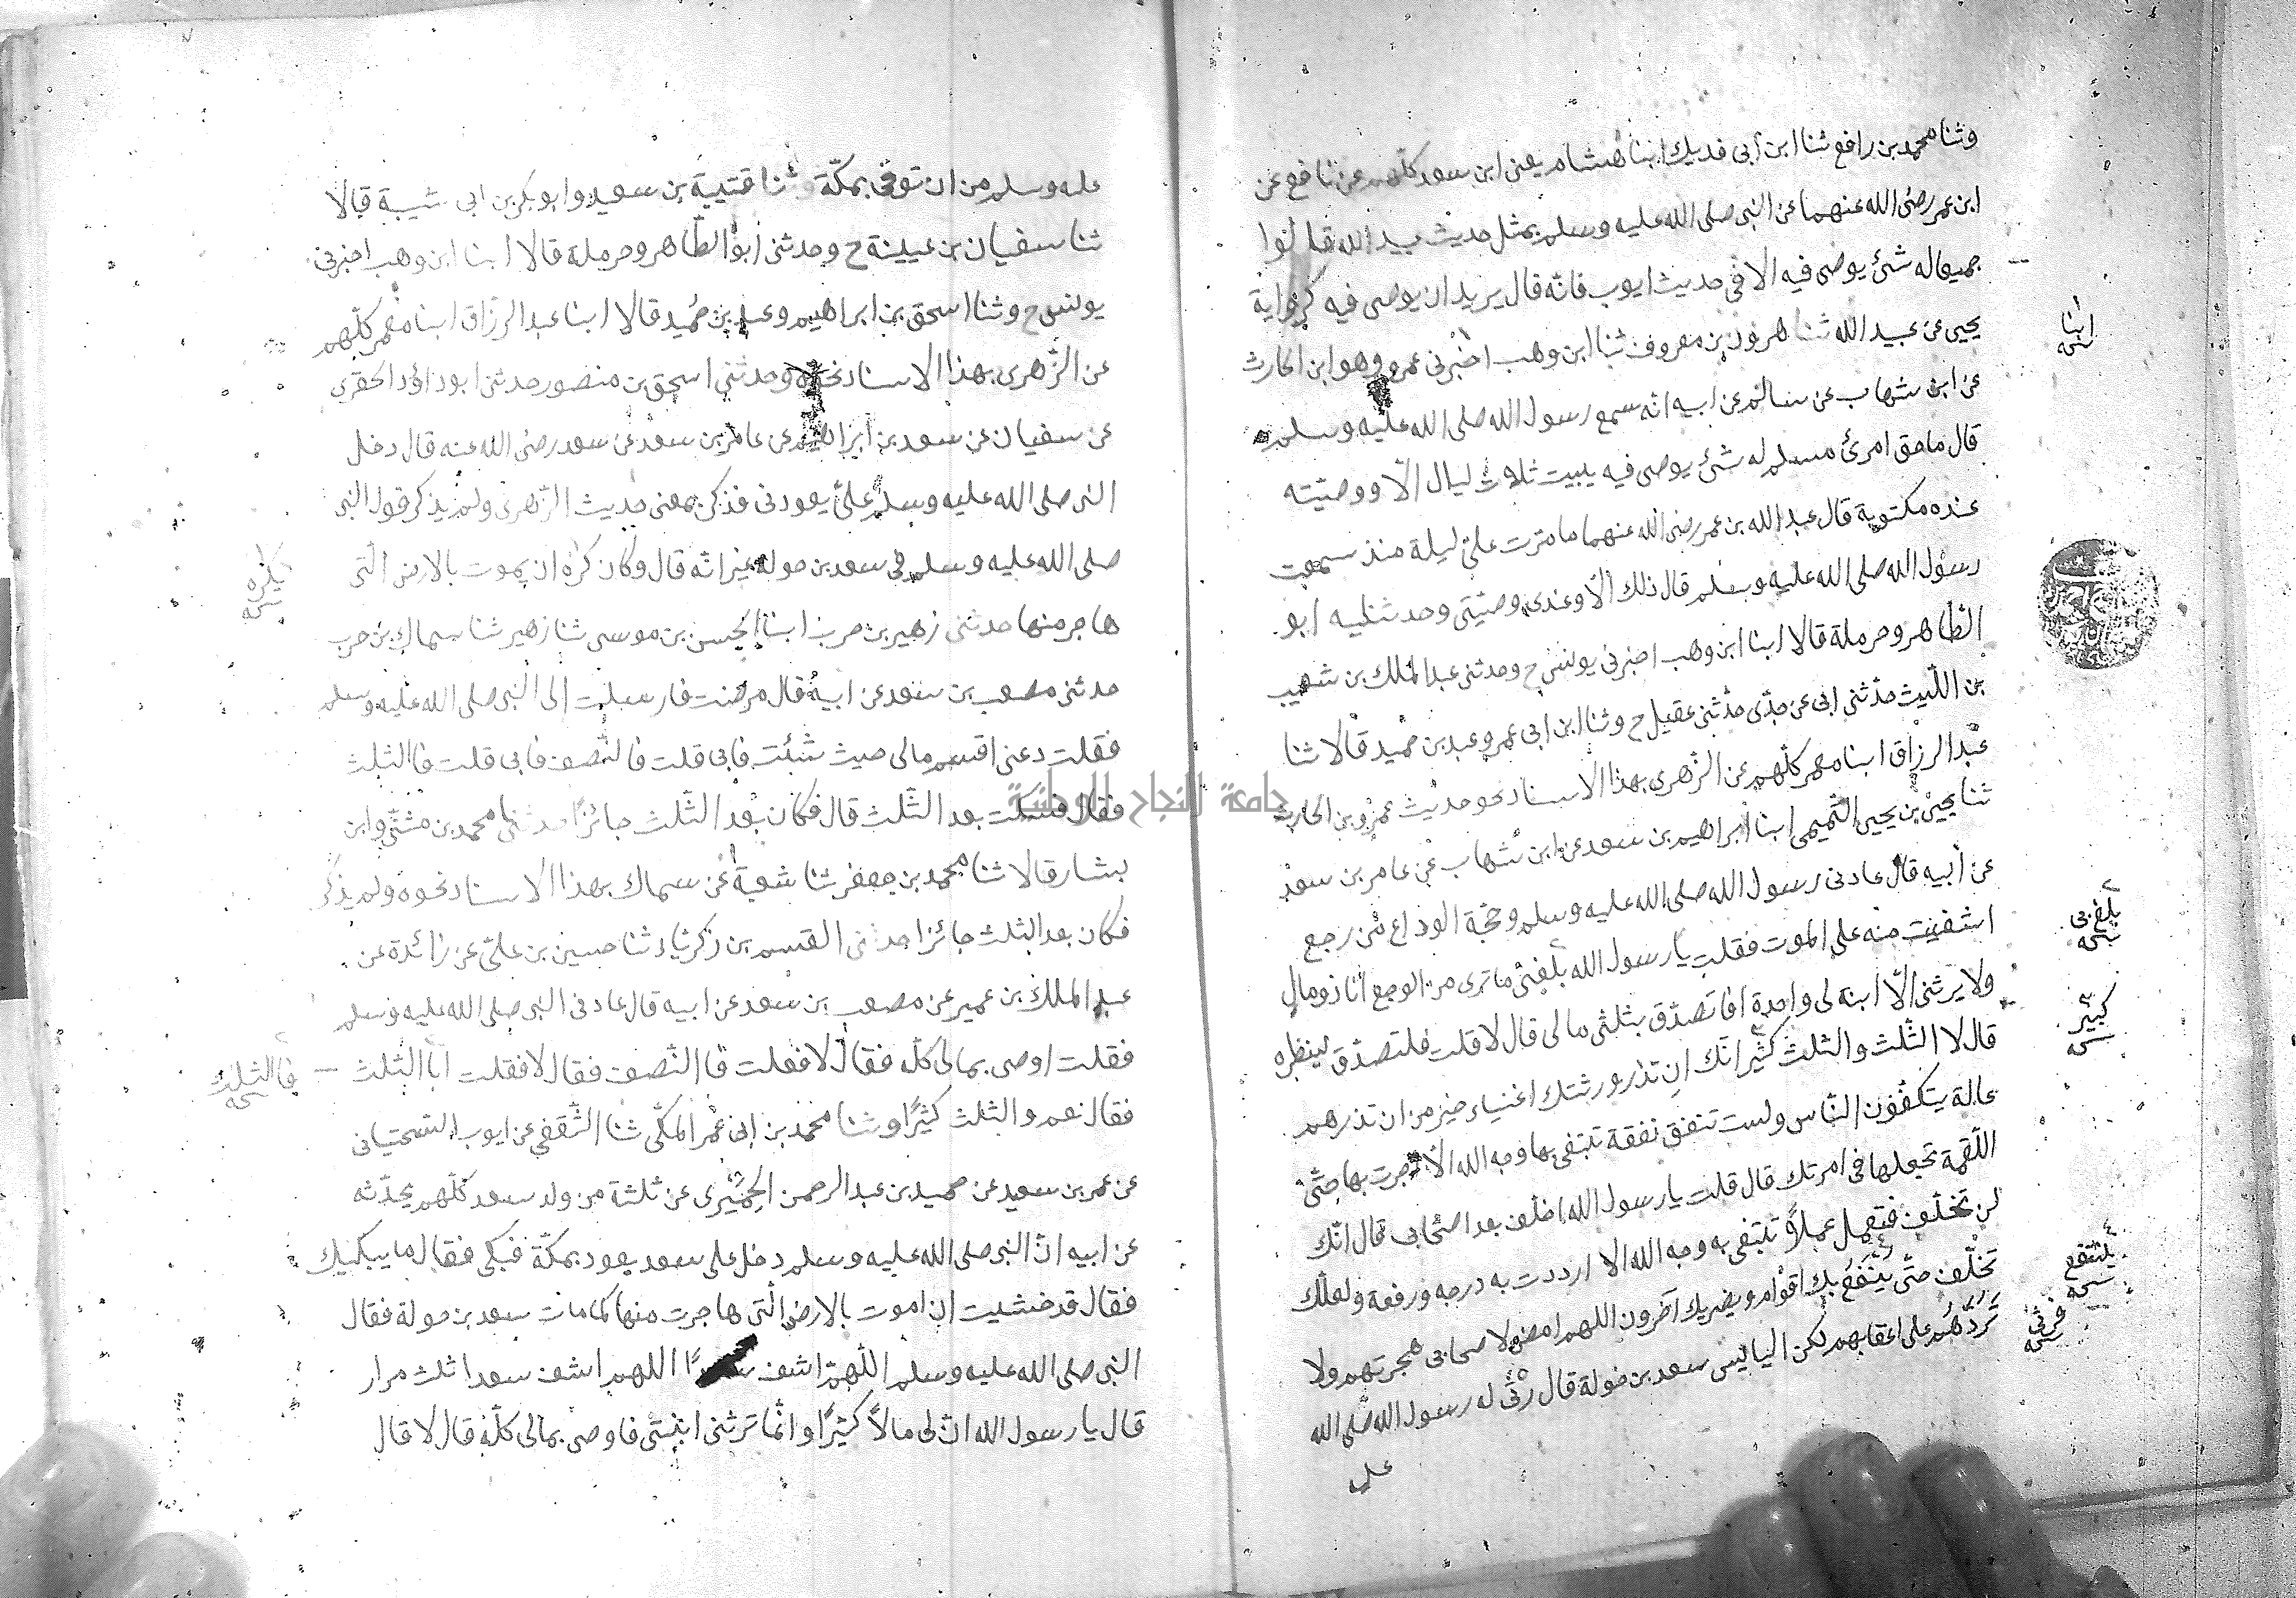 وثنا محمد بن رافع ثنا ابن أبى فديك ابنا هشام يعنى ابن سعد كلهم عن نافع عن
ابن عمر رضى الله عنهما عن النبى صلى الله عليه وسلم بمثل حديث عبيد الله قالوا
جميعا له شئ يوصى فيه الا فى حديث ايوب فانه قال يريد ان يوصى فيه كرواية
يحيى عن عبيد الله ثنا هرون بن معروف ثنا ابن وهب اخبرنى عمرو وهو ابن الحارث
عن ابن شهاب عن سالم عن ابيه انه سمع رسول الله صلى الله عليه وسلم
قال ما حق امرئ مسلم له شئ يوصى فيه يبيت ثلاث ليال الّا ووصيّته
عنده مكتوبة قال عبد الله بن عمر رضى الله عنهما ما مرّت علىّ ليلة منذ سمعت
رسول الله صلى الله عليه وسلم قال ذلك الّا وعندى وصيّتى وحدثنيه ابو
الطاهر وحرملة قالا ابنا ابن وهب اخبرنى يونس ح وحدثنى عبد الملك بن شعيب
بن اللّيث حدّثنى ابى عن جدّى حدّثنى عقيل ح وثنا ابن ابى عمر وعبد بن حميد قالا ثنا
عبد الرزاق ابنا معمر كلّهم عن الزّهرى بهذا الاسناد نحو حديث عمرو بن الحارث
ثنا يحيى بن يحيى التّميمى ابنا ابراهيم بن سعد عن ابن شهاب عن عامر بن سعد
عن أبيه قال عادنى رسول الله صلى الله عليه وسلم وحجّة الوداع من رجع
اشفيت منه على الموت فقلت يا رسول الله بلغنى ما ترى من الوجع انا ذو مال
ولا يرثنى الّا ابنة لى واحدة افاتصدّق بثلثى مالى قال لا قلت فلتصدّق لينظره
قال لا الثّلث والثلث كثير انّك ان تذر ورثتك اغنياء خير من ان تذرهم
عالة يتكفّفون النّاس ولست تنفق نفقة تبتغى بها وجه الله الّا اجرت بها حتّى
اللّقمة تجعلها فى امرتك قال قلت يا رسول الله اخلّف بعد اصحابى قال انّك
لن تخلّف فتعمل عملاً تبتغى به وجه الله الا ازددت به درجه ورفعة ولعلّك
تخلّف حتّى يُنتفع بك اقوام ويضر بك آخرون اللهم امض لاصحابى هجرتهم ولا
تردّهُم على اعقابهم لكن اليايس سعد بن خولة قال رثى له رسول الله صلى الله
علي
ابنا
نسخه
بلغ بى
نسخه
كبير
نسخه
ينتفع
نسخه
فرثى
نسخه
عليه وسلم من ان توفى بمكّة وثنا قتيبة بن سعيد وابو بكر بن ابى شيبة قالا
ثنا سفيان بن عيينة ح وحدثنى ابو الطّاهر وحرملة قالا ابنا ابن وهب اخبرنى
يونس ح وثنا اسحق بن ابراهيم وعبد بن حُميد قالا ابنا عبد الرزّاق ابنا معمر كلّهم
عن الزّهرى بهذا الاسناد نحوه وحدثنى اسحق بن منصور حدثنا ابو داؤد الحفرى
عن سفيان عن سعد بن ابراهيم عن عامر بن سعد عن سعد رضى الله عنه قال دخل
النبى صلى الله عليه وسلم علىّ يعودنى فذكر بمعنى حديث الزّهرى ولم يذكر قول النبى
صلى الله عليه وسلم فى سعد بن خولة غير انّه قال وكان كره ان يموت بالارض الّتى
هاجر منها حدثنى زهير بن حرب ابنا الحسن بن موسى ثنا زهير ثنا سماك بن حرب
حدثنى مصعب بن سعد عن ابيه قال مرضت فارسلت الى النبى صلى الله عليه وسلم
فقلت دعنى اقسم مالى حيث شئت فابى قلت فالنّصف فابى قلت فالثلث
فقال فسكت بعد الثّلث قال فكان بعد الثّلث جائزا حدثنى محمد بن مثنّى وابن
بشار قالا ثنا محمد بن جعفر ثنا شعبة عن سماك بهذا الاسناد نحوه ولم يذكر
فكان بعد الثلث جائزا حدثنى القسم بن زكرياء ثنا حسين بن علىّ عن زائدة عن
عبد الملك بن عمير عن مصعب بن سعد عن ابيه قال عادنى النبى صلى الله عليه وسلم
فقلت اوصى بمالى كلّه فقال لا فقلت فالنّصف فقال لا فقلت ابا الثّلث
فقال نعم والثلث كثيرًا وثنا محمد بن ابى عمر المكّى ثنا الثّقفى عن ايوب السّختيانى
عن عمر بن سعيد عن حميد بن عبد الرحمن الحِميَرى عن ثلثة من ولد سعد كلّهم يحدّثه
عن ابيه انّ النبى صلى الله عليه وسلم دخل على سعد يعود بمكّة فبكى فقال ما يبكيك
فقال قد خشيت ان اموت بالارض الّتى هاجرت منها كما مات سعد بن خولة فقال
النبى صلى الله عليه وسلم اللّهمّ اشف سعدًا اللهم اشف سعدا ثلث مرار
قال يا رسول الله انّ لى مالاً كثيرًا وانّما ترثنى ابنتى فاوصى بمالى كلّه قال لا قال
يكره
نسخه
فالثلث
نسخه
جامعة النجاح الوطنية